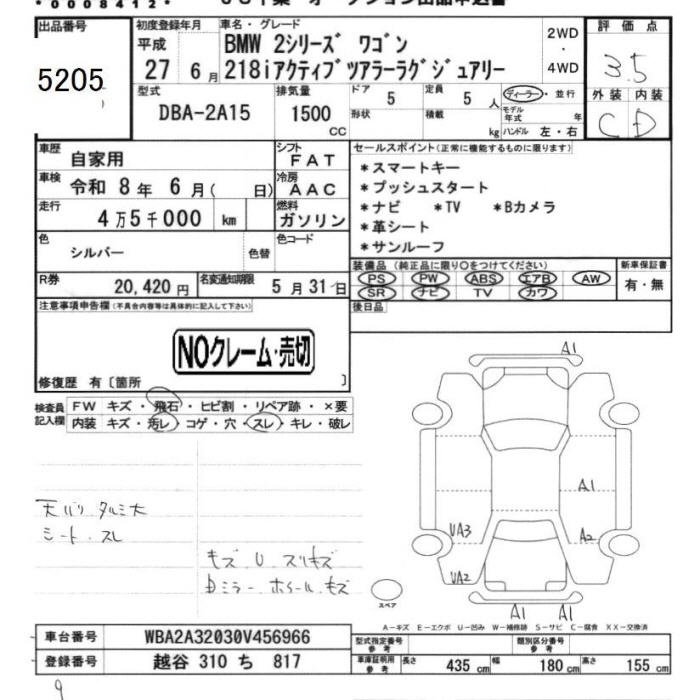 *0008412*
出品番号
5205
初度登録年月
平成
27 6月
車名・グレード
BMW 2シリーズ ワゴン
218iアクティブツアラーラグジュアリー
2WD
・
4WD
評価点
3.5
外装 内装
C D
型式
DBA-2A15
排気量
1500
CC
ドア
5
定員
5人
形状
積載
kg
ディーラー・並行
モデル年式 年
ハンドル 左・右
車歴
自家用
シフト
FAT
車検
令和 8年 6月( 日)
冷房
AAC
走行
4万5千000 km
燃料
ガソリン
色
シルバー
色替
色コード
R券
20,420円
名変通知期限
5月31日
セールスポイント(正常に機能するものに限ります)
*スマートキー
*プッシュスタート
*ナビ *TV *Bカメラ
*革シート
*サンルーフ
装備品(純正品に限り○をつけてください)
PS PW ABS エアB AW
SR ナビ TV カワ
新車保証書
有・無
後日品
注意事項申告欄(不具合内容等は具体的に記入して下さい)
NOクレーム・売切
修復歴 有〔箇所 〕
検査員記入欄
FW キズ・飛石・ヒビ割・リペア跡・×要
内装 キズ・汚レ・コゲ・穴・スレ・キレ・破レ
天バリ タルミ大
シート スレ
キズ U スリキズ
ミラー ホイール キズ
A1
A1
A2
UA3
UA2
A1 A1
スペア
A-キズ E-エクボ U-凹み W-補修跡 S-サビ C-腐食 XX-交換済
車台番号
WBA2A32030V456966
登録番号
越谷 310 ち 817
型式指定番号
参考
類別区分番号
参考
車庫証明用
参考
長さ 435cm 幅 180cm 高さ 155cm
9